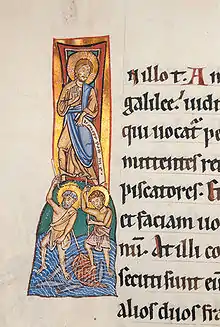 n illo t. A m
galilee. uidi
qui uocat' pe
mittentes re
piscatores. h
et faciam uo
nū. At illi co
secuti sunt eu
alios duos fra